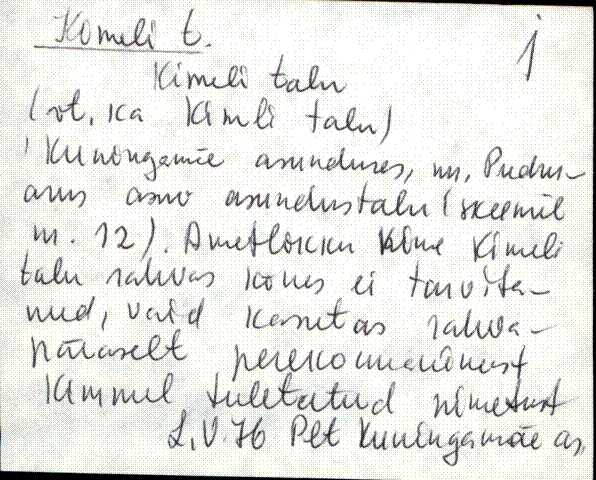 Komeli t.
1
Kimeli talu
(vt. ka Kimli talu)
Kuningamäe asunduses, nn. Pudru-
aru asuv asundustalu (skeemil
nr. 12). Ametlikku nime Kimeli
talu rahvas kõnes ei tarvita-
nud, vaid kasutas rahva-
päraselt perekonnanimest
Kimmel tuletatud nimetust
L.V. 76 Plt Kuningamäe as.